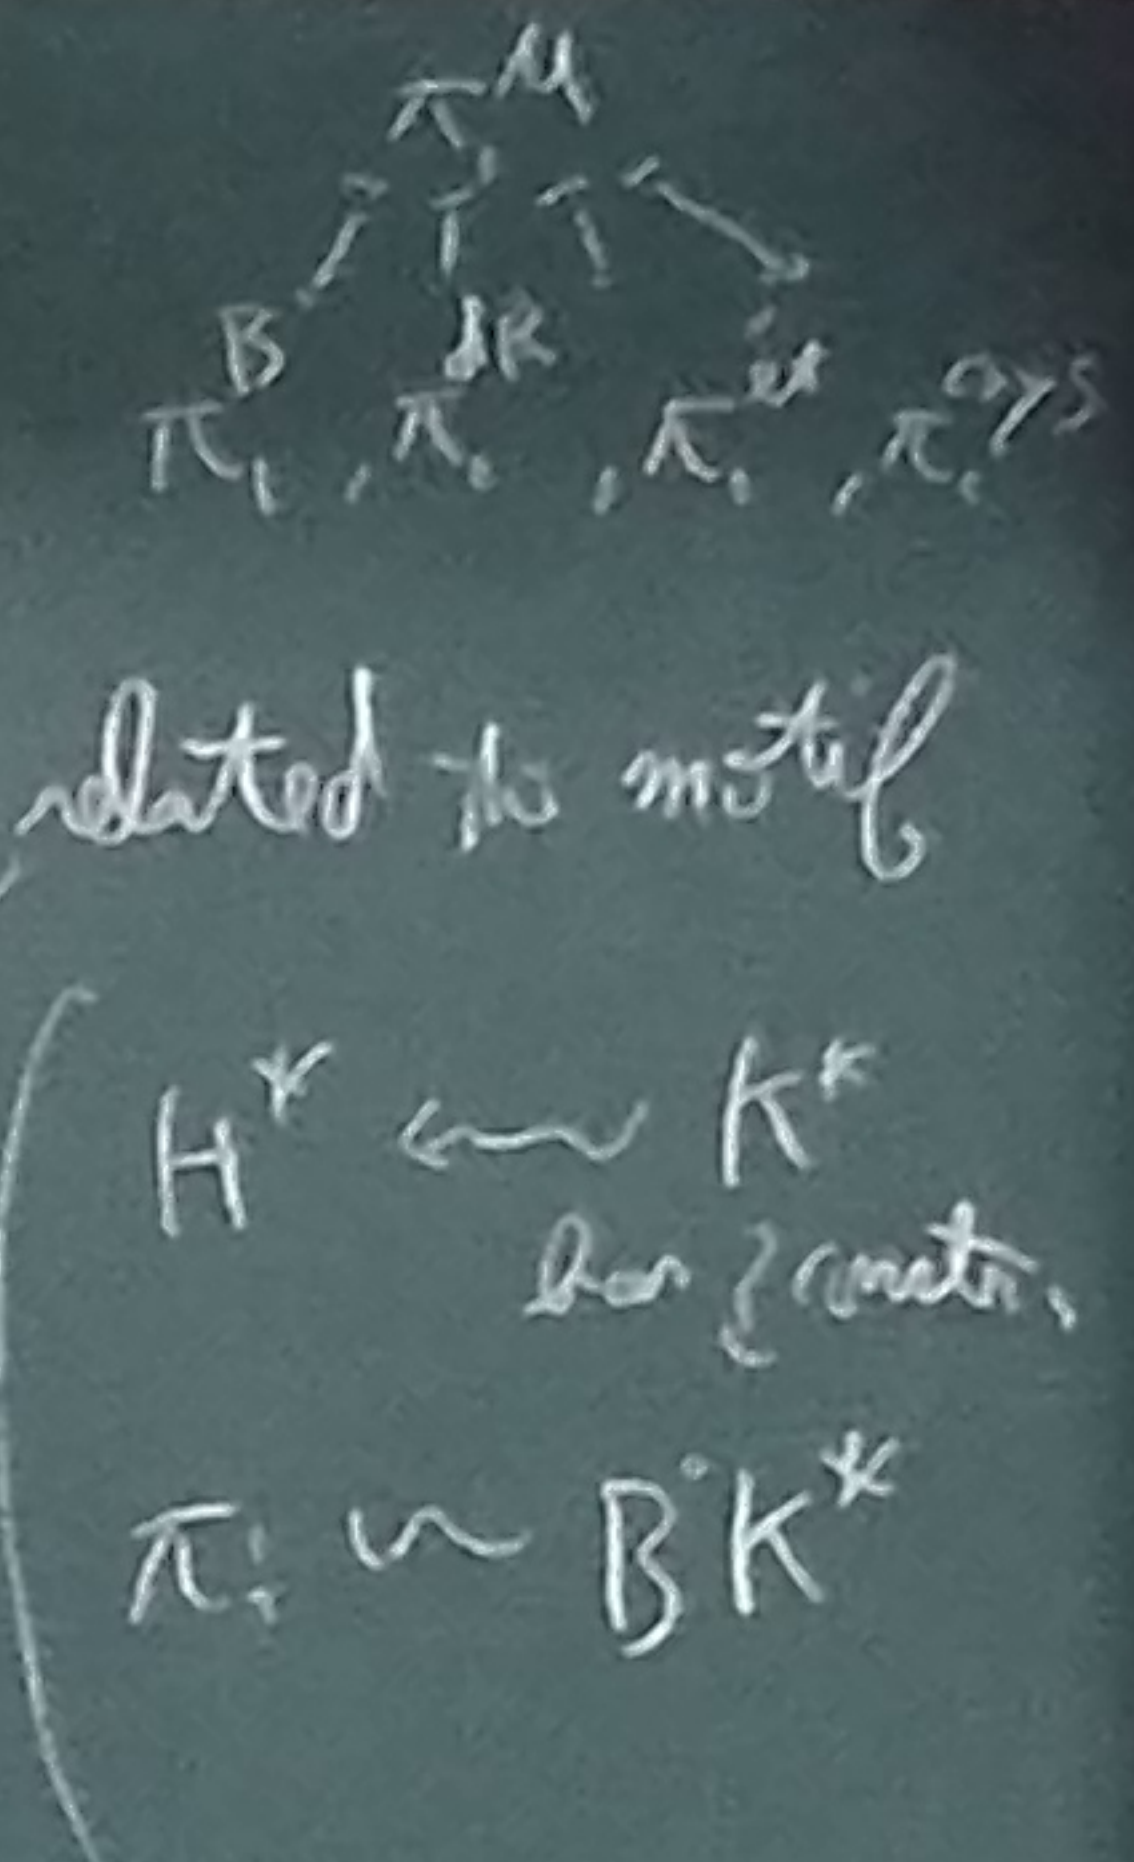 π₁ᴹ
π₁ᴮ, π₁ᵈᴿ, π₁ᵉ́ᵗ, π₁ᶜʳʸˢ
related to motif
H* ⇜ K*
bar constr.
π₁ ~ B•K*